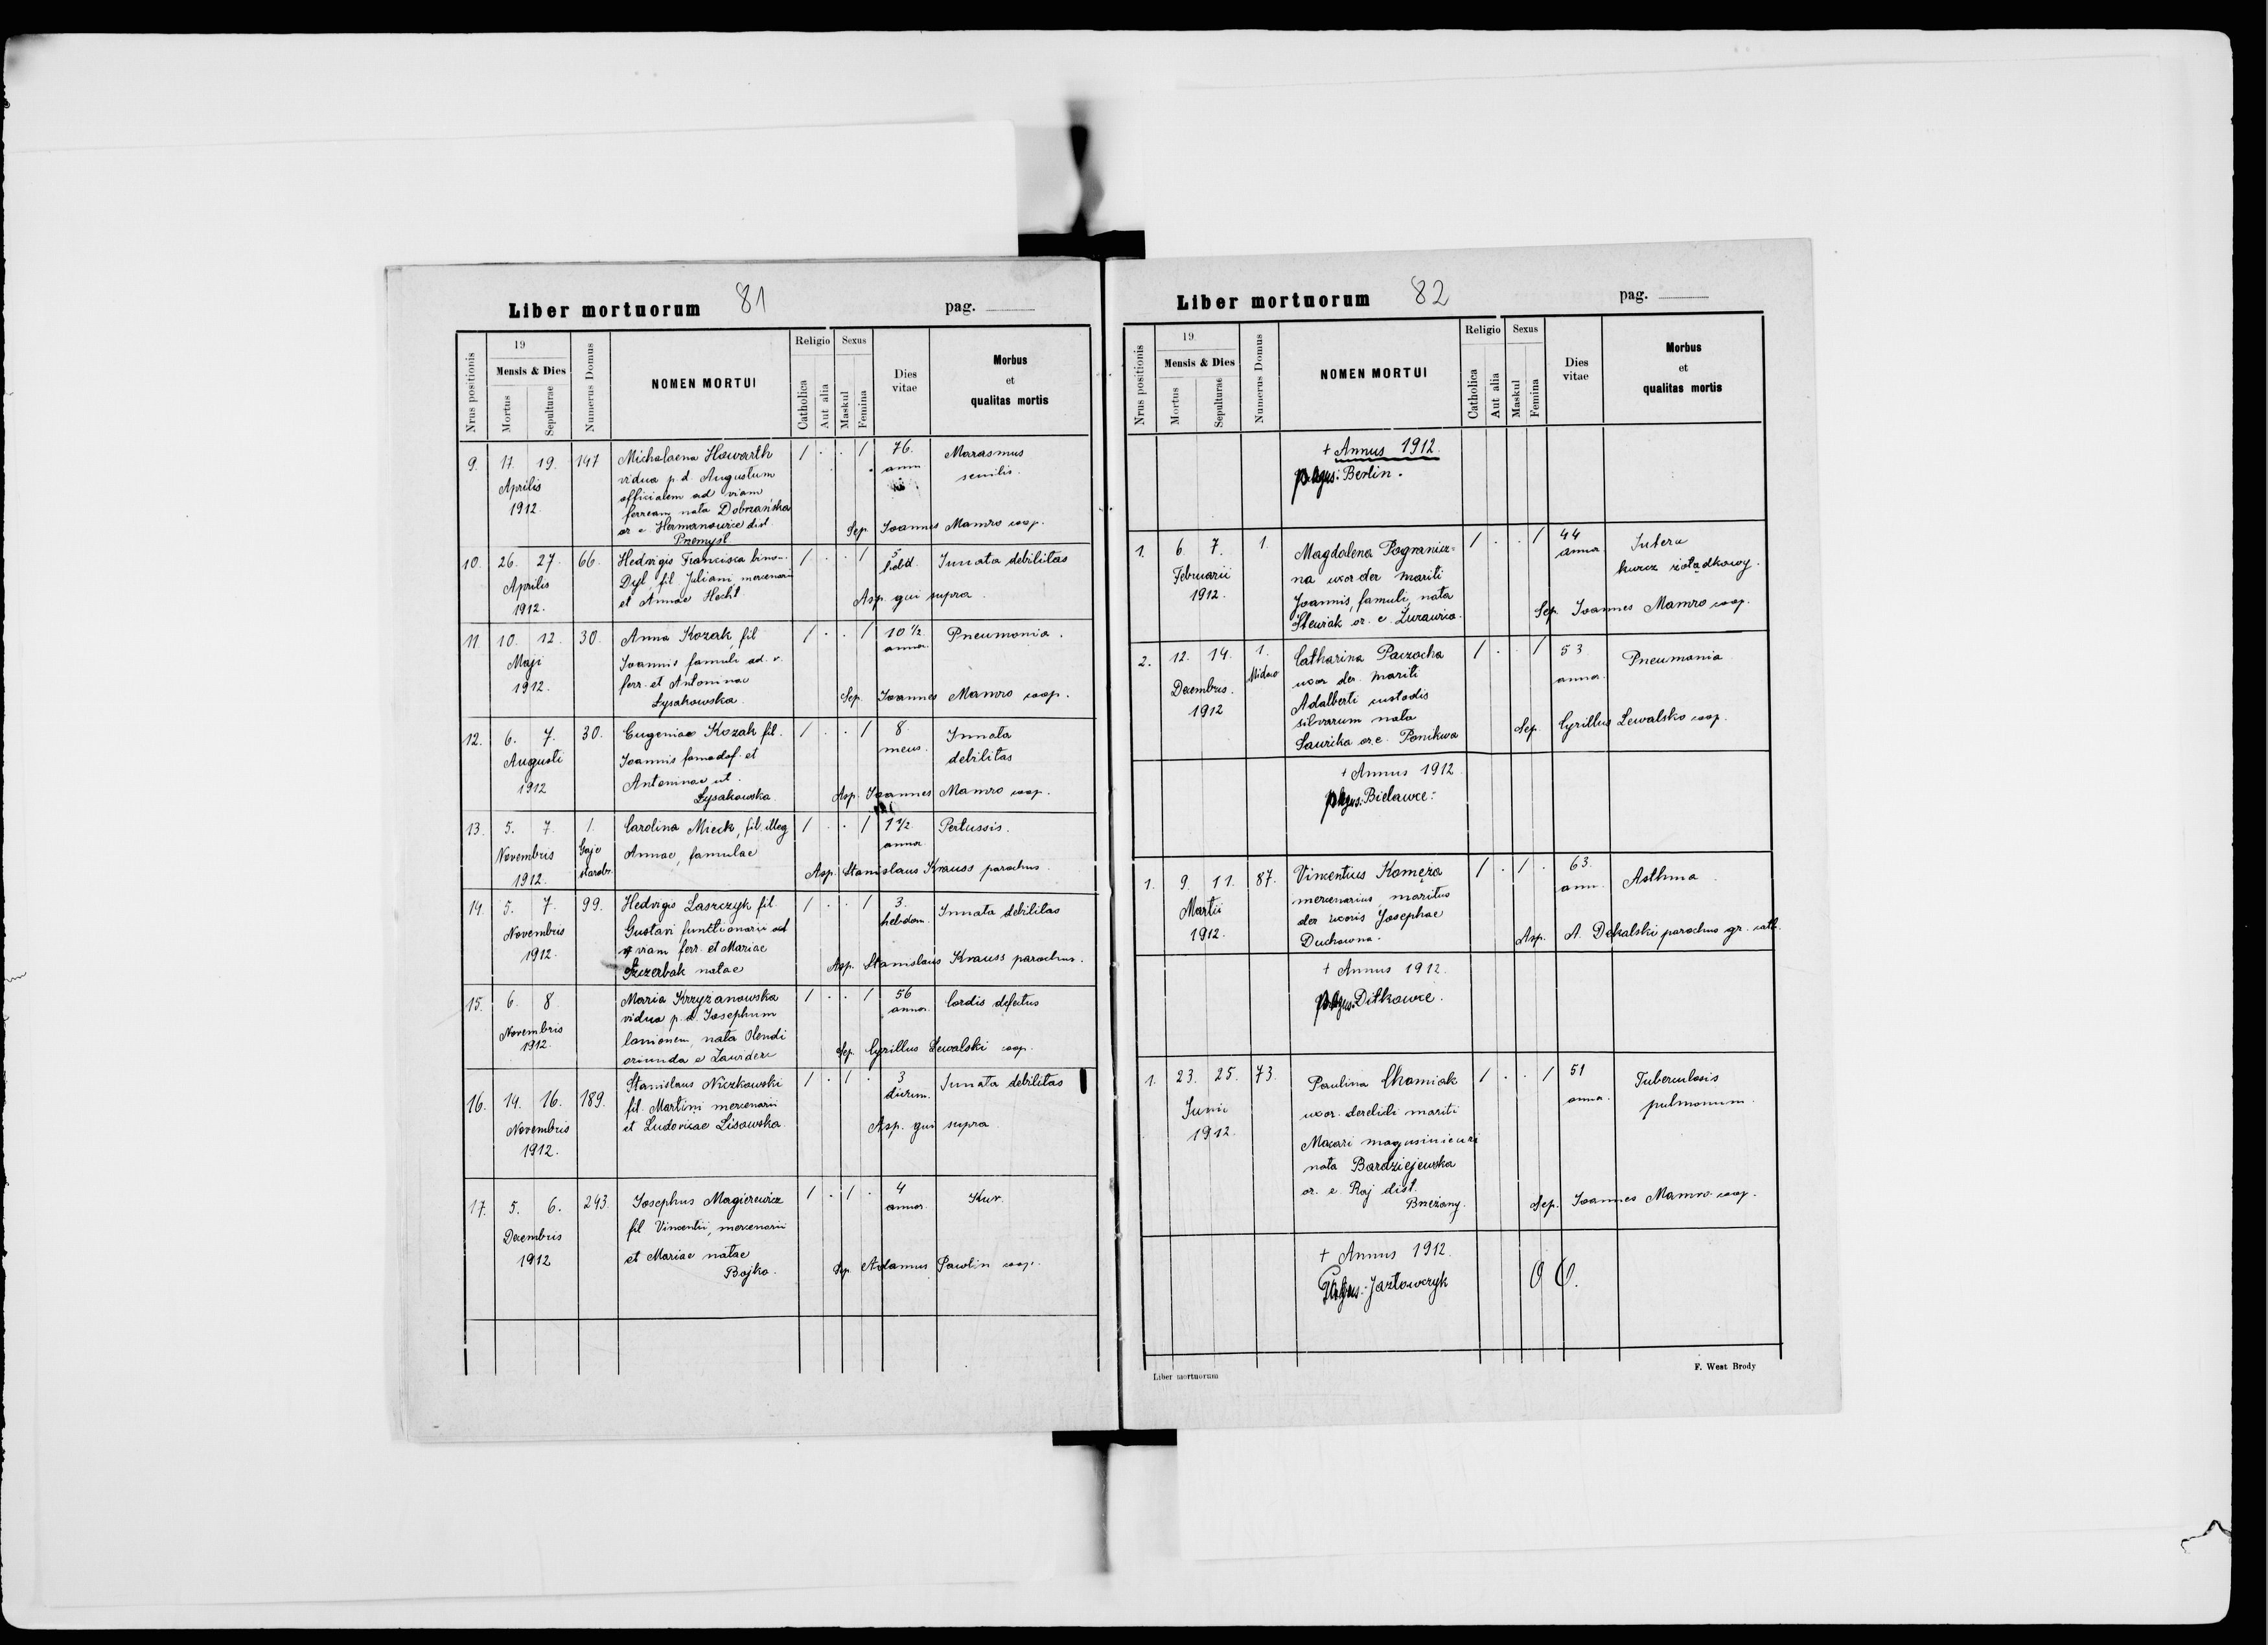 Liber mortuorum 81 pag.
Nrus positionis
19
Mensis & Dies
Mortus
Sepulturae
Numerus Domus
NOMEN MORTUI
Religio
Catholica
Aut alia
Sexus
Maskul
Femina
Dies vitae
Morbus
et
qualitas mortis
9. 17. 19. 147 Michalaena Howarth / . . / 76. Marasmus
Aprilis vidua p. d. Augustum ann senilis.
1912. officialem ad viam
ferream nata Dobrzańska
or e Hermanowice dist. Sep. Joannes Mamro coop.
Przemyśl.
10. 26. 27. 66. Hedvigis Francisca binom. / . . / 5 Innata debilitas
Aprilis Dyl, fil Juliani mercenarii hebd.
1912. et Annae Hecht. Asp. qui supra.
11. 10. 12. 30. Anna Kozak, fil / . . / 10 1/2 Pneumonia.
Maji Joannis famuli ad. v. annor.
1912. ferr. et Antoninae
Łysakowska. Sep. Joannes Mamro coop.
12. 6. 7. 30. Eugeniae Kozak fil. / . . / 8 Innata
Augusti Joannis et mens. debilitas
1912 Antoninae ut.
Łysakowska. Asp. Joannes Mamro coop.
13. 5. 7. 1. Carolina Mieck, fil. illeg / . . / 1 1/2 Pertussis.
Novembris Gaje Annae, famulae annor
1912. starobr. Asp. Stanislaus Krauss parochus.
14. 5. 7. 99. Hedvigis Laszczyk fil. / . . / 3. Innata debilitas
Novembris Gustavi functionarii ad hebdom.
1912. viam ferr. et Mariae
Szczerbak natae Asp. Stanislaus Krauss parochus.
15. 6. 8. Maria Krzyżanowska / . . / 56 Cordis defectus
Novembris vidua p. d. Josephum annor.
1912. lanionem, nata Olendi
oriunda e Sep. Cyrillus Lewalski coop.
16. 14. 16. 189. Stanislaus Niczkowski / . / . 3 Innata debilitas
Novembris fil. Martini mercenarii dierum.
1912. et Ludovicae Lisowska. Asp. qui supra
17. 5. 6. 243. Josephus Magierewicz / . / . 4 Kur.
Decembris fil Vincentii, mercenarii annor.
1912 et Mariae natae
Bojko. Sep. Adamus Pawlin coop.
Liber mortuorum 82 pag.
Nrus positionis
19
Mensis & Dies
Mortus
Sepulturae
Numerus Domus
NOMEN MORTUI
Religio
Catholica
Aut alia
Sexus
Maskul
Femina
Dies vitae
Morbus
et
qualitas mortis
+ Annus 1912.
pagus: Berlin.
1. 6. 7. 1. Magdalena Pogranicz= / . . / 44
Februarii na uxor der mariti annor kurcz żołądkowy.
1912. Joannis, famuli, nata
or. e. Żurawica. Sep. Joannes Mamro coop.
2. 12. 14. 1. Catharina Paczocha / . . / 53 Pneumonia
Decembris. uxor der. mariti annor.
1912 Adalberti custodis
silvarum nata
Sawicka or. e. Ponikwa Sep. Cyrillus Lewalski coop.
+ Annus 1912
pagus: Bielawce:
1. 9. 11. 87. Vincentius Komęza / . / . 63. Asthma.
Martii mercenarius, maritus ann.
1912. der uxoris Josephae
Duchowna. Asp. A. Dekalski parochus gr. cath.
+ Annus 1912.
pagus: Ditkowce.
1. 23. 25. 73. Paulina Chomiak / . . / 51 Tuberculosis
Junii uxor. derelicti mariti annor. pulmonum.
1912. Macari
nata Bardziejewska
or. e. Raj dist.
Brzeżany. Sep. Joannes Mamro coop.
+ Annus 1912.
Pagus: Jazłowczyk
Liber mortuorum
F. West Brody